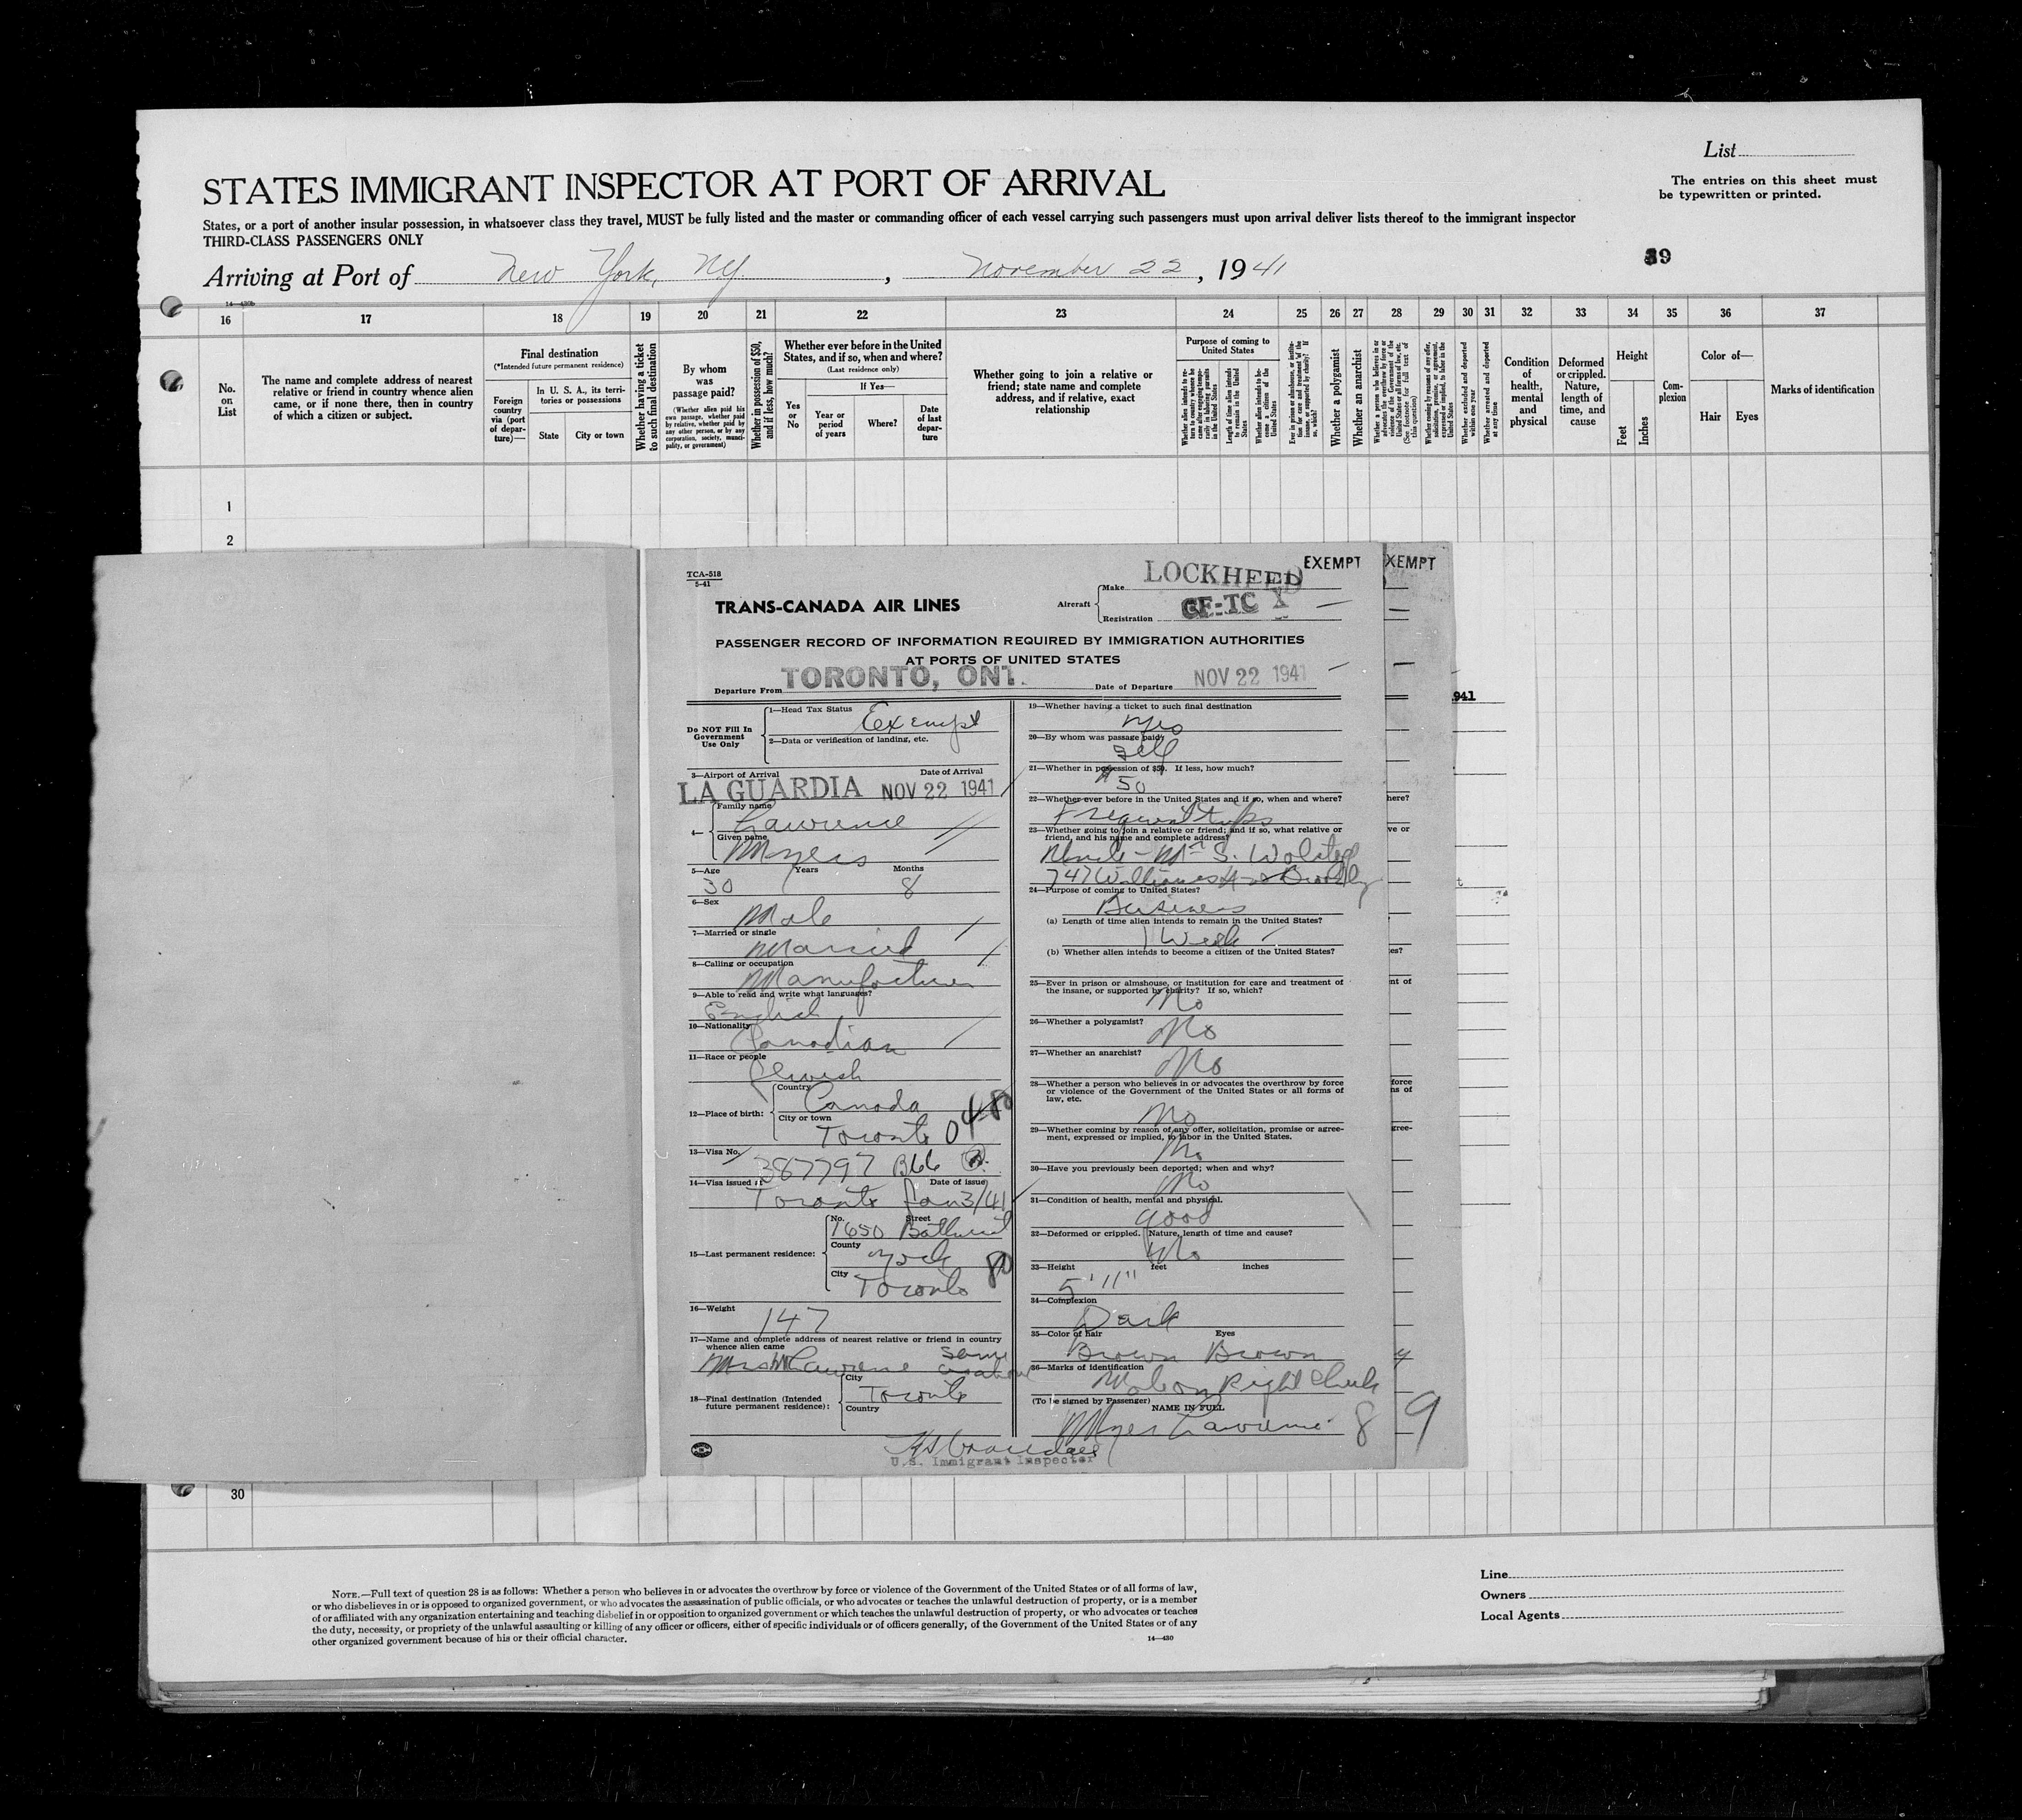 List
The entries on this sheet must
be typewritten or printed.
STATES IMMIGRANT INSPECTOR AT PORT OF ARRIVAL
States, or a port of another insular possession, in whatsoever class they travel, MUST be fully listed and the master or commanding officer of each vessel carrying such passengers must upon arrival deliver lists thereof to the immigrant inspector
THIRD-CLASS PASSENGERS ONLY
Arriving at Port of New York, NY. , November 22, 1941
14—430b
16 17 18 19 20 21 22 23 24 25 26 27 28 29 30 31 32 33 34 35 36 37
No. on List
The name and complete address of nearest
relative or friend in country whence alien
came, or if none there, then in country
of which a citizen or subject.
Final destination
(*Intended future permanent residence)
Foreign country via (port of departure)—
In U. S. A., its territories or possessions
State
City or town
Whether having a ticket to such final destination
By whom was passage paid?
(Whether alien paid his own passage, whether paid by relative, whether paid by any other person, or by any corporation, society, municipality, or government)
Whether in possession of $50, and if less, how much?
Whether ever before in the United
States, and if so, when and where?
(Last residence only)
If Yes—
Yes or No
Year or period of years
Where?
Date of last departure
Whether going to join a relative or
friend; state name and complete
address, and if relative, exact
relationship
Purpose of coming to
United States
Whether alien intends to return to country whence he came after engaging temporarily in laboring pursuits in the United States
Length of time alien intends to remain in the United States
Whether alien intends to become a citizen of the United States
Ever in prison or almshouse, or institution for care and treatment of the insane, or supported by charity? If so, which?
Whether a polygamist
Whether an anarchist
Whether coming by reason of any offer, solicitation, promise, or agreement, expressed or implied, to labor in the United States
Whether excluded and deported within one year
Whether arrested and deported at any time
Condition of health, mental and physical
Deformed or crippled. Nature, length of time, and cause
Height
Feet
Inches
Complexion
Color of—
Hair
Eyes
Marks of identification
1
2
TCA-518
5-41
TRANS-CANADA AIR LINES
Aircraft
Make LOCKHEED
Registration CF-TC X
EXEMPT
XEMPT
PASSENGER RECORD OF INFORMATION REQUIRED BY IMMIGRATION AUTHORITIES
AT PORTS OF UNITED STATES
Departure From TORONTO, ONT. Date of Departure NOV 22 1941
941
Do NOT Fill In
Government
Use Only
1—Head Tax Status Exempt
2—Data or verification of landing, etc.
3—Airport of Arrival Date of Arrival
LA GUARDIA NOV 22 1941
4—
Family name
Lawrence
Given name
Myers
5—Age Years Months
30 8
6—Sex
Male
7—Married or single
Married
8—Calling or occupation
Manufacturer
9—Able to read and write what languages?
English
10—Nationality
Canadian
11—Race or people
Jewish
12—Place of birth:
Country
Canada
City or town
Toronto
13—Visa No.
387797 B66
14—Visa issued at Date of issue
Toronto Jan 3/41
15—Last permanent residence:
No. Street
1650 Bathurst
County
York
City
Toronto 80
16—Weight
147
17—Name and complete address of nearest relative or friend in country
whence alien came
Mrs M Lawrence same as above
18—Final destination (Intended
future permanent residence):
City
Toronto
Country
19—Whether having a ticket to such final destination
Yes
20—By whom was passage paid?
Self
21—Whether in possession of $50. If less, how much?
$50
22—Whether ever before in the United States and if so, when and where?
Frequent trips
23—Whether going to join a relative or friend; and if so, what relative or
friend, and his name and complete address?
Uncle - Mr S.
747 Williams
24—Purpose of coming to United States?
Business
(a) Length of time alien intends to remain in the United States?
1 Week
(b) Whether alien intends to become a citizen of the United States?
25—Ever in prison or almshouse, or institution for care and treatment of
the insane, or supported by charity? If so, which?
No
26—Whether a polygamist?
No
27—Whether an anarchist?
No
28—Whether a person who believes in or advocates the overthrow by force
or violence of the Government of the United States or all forms of
law, etc.
No
29—Whether coming by reason of any offer, solicitation, promise or agree-
ment, expressed or implied, to labor in the United States.
No
30—Have you previously been deported; when and why?
No
31—Condition of health, mental and physical.
Good
32—Deformed or crippled. Nature, length of time and cause?
No
33—Height feet inches
5'11"
34—Complexion
Dark
35—Color of hair Eyes
Brown Brown
36—Marks of identification
Mole on Right Cheek
(To be signed by Passenger) NAME IN FULL
Myer Lawrence 8 9
U.S. Immigrant Inspector
30
Line
Owners
Local Agents
NOTE.—Full text of question 28 is as follows: Whether a person who believes in or advocates the overthrow by force or violence of the Government of the United States or of all forms of law,
or who disbelieves in or is opposed to organized government, or who advocates the assassination of public officials, or who advocates or teaches the unlawful destruction of property, or is a member
of or affiliated with any organization entertaining and teaching disbelief in or opposition to organized government or which teaches the unlawful destruction of property, or who advocates or teaches
the duty, necessity, or propriety of the unlawful assaulting or killing of any officer or officers, either of specific individuals or of officers generally, of the Government of the United States or of any
other organized government because of his or their official character.
14—430